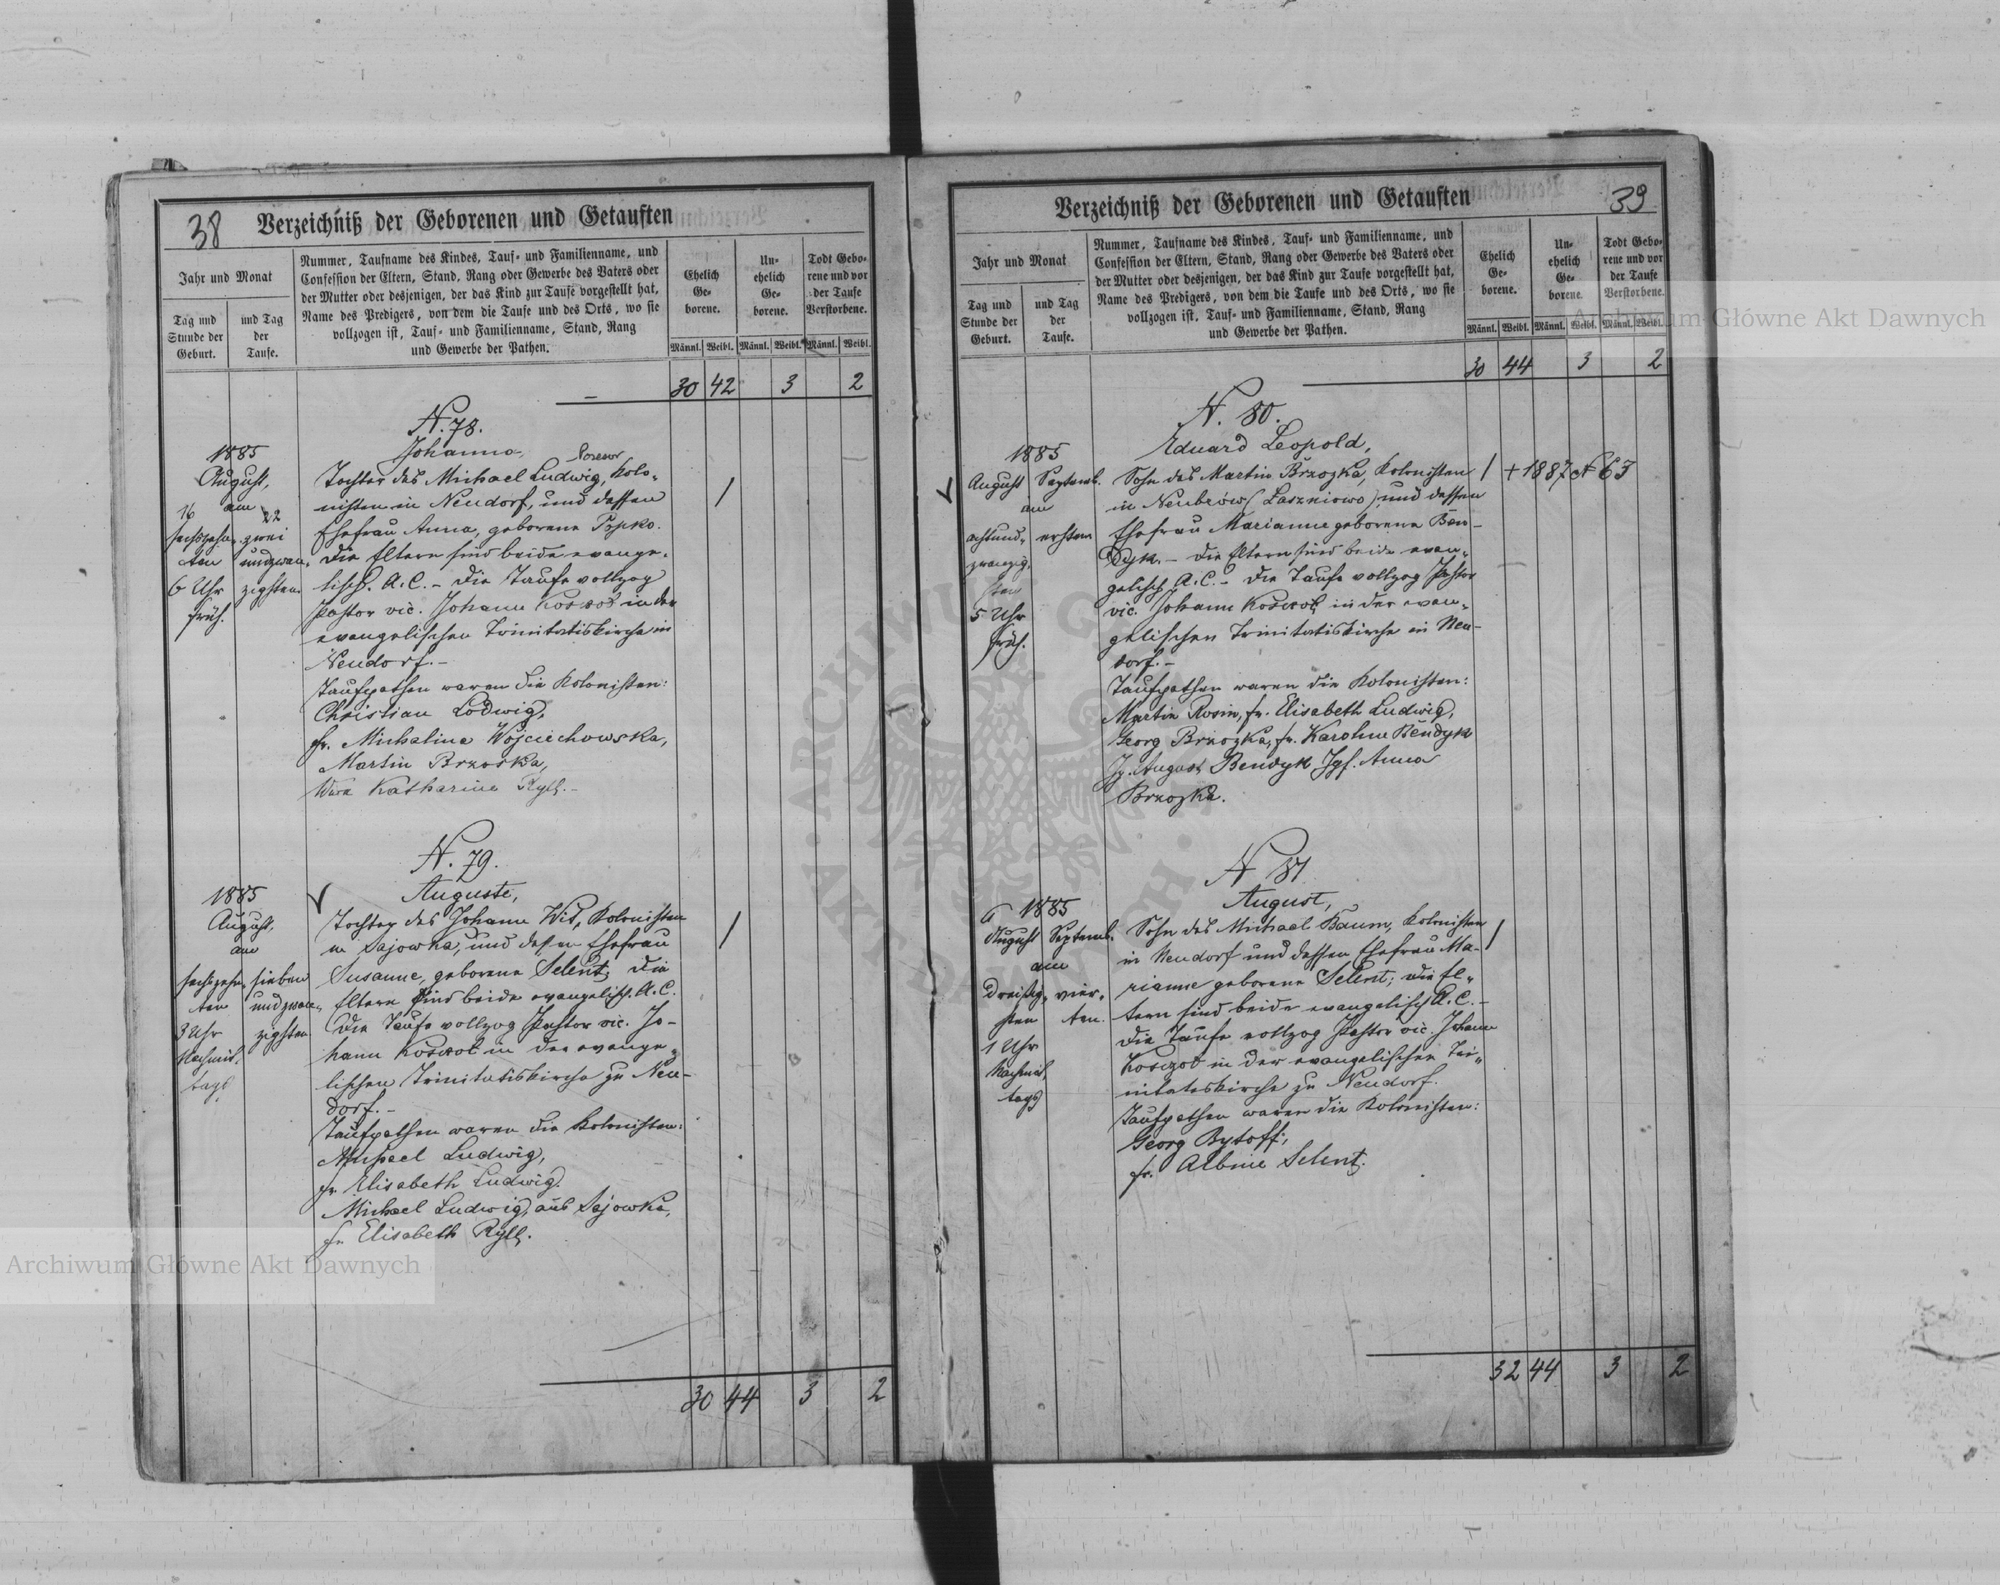 38 Verzeichniß der Geborenen und Getauften
Jahr und Monat
Tag und Stunde der Geburt.
und Tag der Taufe.
Nummer, Taufname des Kindes, Tauf- und Familienname, und
Confession der Eltern, Stand, Rang oder Gewerbe des Vaters oder
der Mutter oder desjenigen, der das Kind zur Taufe vorgestellt hat,
Name des Predigers, von dem die Taufe und des Orts, wo sie
vollzogen ist, Tauf- und Familienname, Stand, Rang
und Gewerbe der Pathen.
Ehelich Ge- borene.
Un- ehelich Ge- borene.
Todt Gebo- rene und vor der Taufe Verstorbene.
Männl. Weibl. Männl. Weibl. Männl. Weibl.
30 42 3 2
N. 78.
Johanna,
1885
August,
am
16 22
sechszehn- zwei
ten undzwan-
6 Uhr zigsten
früh.
Tochter des Michael Ludwig, Kolo-
nisten in Neudorf, und dessen
Ehefrau Anna, geborene Popko.
Die Eltern sind beide evange-
lisch. A. C. - Die Taufe vollzog
Pastor vic. Johann in der
evangelischen Trinitatiskirche in
Neudorf. -
Taufpathen waren die Kolonisten:
Christian Lodwig,
fr. Michalina Wojciechowska,
Martin Brzoska,
Katharine Ryll. -
N. 79.
Auguste,
1885
August,
am
sechszehn- sieben
ten undzwan-
3 Uhr zigsten
Nachmit-
tags
Tochter des Johann Wit, Kolonisten
in Sajowka, und dessen Ehefrau
Susanne, geborene Selent; die
Eltern sind beide evangelisch. A. C.
Die Taufe vollzog Pastor vic. Jo-
hann in der evange-
lischen Trinitatiskirche zu Neu-
dorf. -
Taufpathen waren die Kolonisten:
Michael Ludwig,
fr. Elisabeth Ludwig.
Michael Ludwig, aus Sajowka,
fr. Elisabeth Ryll.
30 44 3 2
Verzeichniß der Geborenen und Getauften 39
Jahr und Monat
Tag und Stunde der Geburt.
und Tag der Taufe.
Nummer, Taufname des Kindes, Tauf- und Familienname, und
Confession der Eltern, Stand, Rang oder Gewerbe des Vaters oder
der Mutter oder desjenigen, der das Kind zur Taufe vorgestellt hat,
Name des Predigers, von dem die Taufe und des Orts, wo sie
vollzogen ist, Tauf- und Familienname, Stand, Rang
und Gewerbe der Pathen.
Ehelich Ge- borene.
Un- ehelich Ge- borene.
Todt Gebo- rene und vor der Taufe Verstorbene.
Männl. Weibl. Männl. Weibl. Männl. Weibl.
30 44 3 2
N. 80.
Eduard Leopold,
1885
August Septemb.
am
achtund- ersten
zwanzig-
sten
5 Uhr
früh.
Sohn des Martin Brzozka, Kolonisten
in Neubrów (Laszniowo) und dessen
Ehefrau Marianne geborene Ben-
dyk. - Die Eltern sind beide evan-
gelisch A. C. - Die Taufe vollzog Pastor
vic. Johann in der evan-
gelischen Trinitatiskirche in Neu-
dorf. -
Taufpathen waren die Kolonisten:
Martin Rosin, fr. Elisabeth Ludwig,
Georg Brzozka, fr. Karoline Bendyk
Jg. August Bendyk Jgf. Anna
Brzozka.
+ 1887 N 63
N 81
August,
1885
August Septemb.
am
dreißig- vier-
sten ten.
1 Uhr
Nachmit-
tags
Sohn des Michael Baum, Kolonisten
in Neudorf und dessen Ehefrau Ma-
rianne geborene Selent; die El-
tern sind beide evangelisch A. C. -
Die Taufe vollzog Pastor vic. Johann
in der evangelischen Tri-
nitatiskirche zu Neudorf.
Taufpathen waren die Kolonisten:
Georg Bytoff,
fr. Albine Selent.
32 44 3 2
Archiwum Główne Akt Dawnych
Archiwum Główne Akt Dawnych